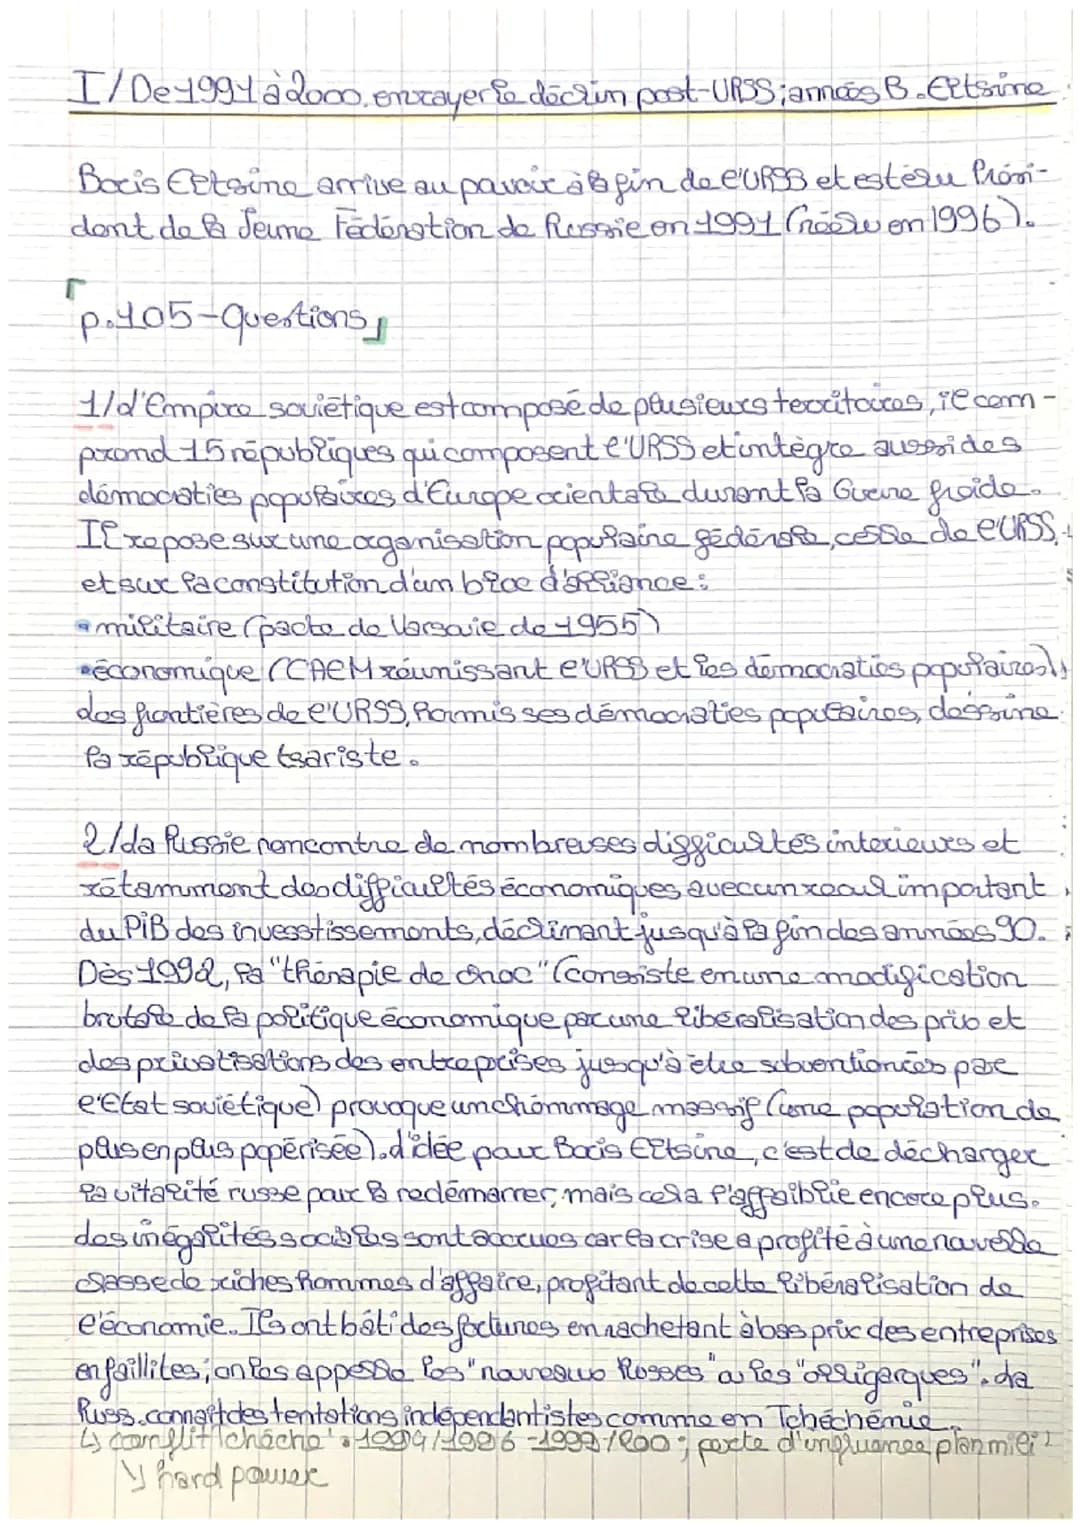 I/ De 1991 à 2000, enrayer le déclin post-URSS ; années B. Eltsine :
Boris Eltsine arrive au pouvoir à la fin de l'URSS et est élu Prési-
dent de la Jeune Fédération de Russie en 1991 (réélu en 1996).
p.105 - Questions
1/ L'Empire soviétique est composé de plusieurs territoires, il com-
prend 15 républiques qui composent l'URSS et intègre aussi des
démocraties populaires d'Europe orientale durant la Guerre froide.
Il repose sur une organisation populaire fédérale, celle de l'URSS,
et sur la constitution d'un bloc d'alliance :
• militaire (pacte de Varsovie de 1955)
• économique (CAEM réunissant l'URSS et les démocraties populaires)
Les frontières de l'URSS, hormis ses démocraties populaires, dessine
la république tsariste.
2/ La Russie rencontre de nombreuses difficultés intérieures et
notamment des difficultés économiques avec un recul important
du PiB des investissements, déclinant jusqu'à la fin des années 90.
Dès 1992, la "thérapie de choc" (consiste en une modification
brutale de la politique économique par une libéralisation des prix et
des privatisations des entreprises jusqu'à être subventionnées par
l'Etat soviétique) provoque un chômmage massif (une population de
plus en plus popérisée). L'idée pour Boris Eltsine, c'est de décharger
la vitalité russe pour la redémarrer, mais cela l'affaiblie encore plus.
Les inégalités sociales sont accrues car la crise a profité à une nouvelle
classe de riches hommes d'affaire, profitant de cette libéralisation de
l'économie. Ils ont bâti des fortunes en rachetant à bas prix des entreprises
en faillites ; on les appelle les "nouveaux Russes" ou les "olligarques". La
Russ. connaît des tentations indépendantistes comme en Tchéchénie.
↳ conflit Tchéche : 1994/1996 - 1999/200 ; perte d'influence plan mili
↳ hard power